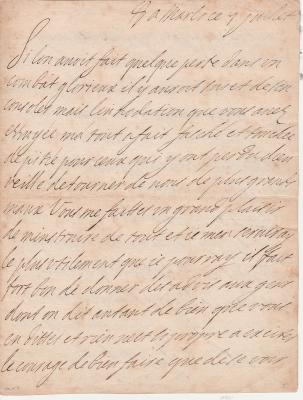 a Marly ce 7 juillet
Si lon avoit fait quelque perte dans un
combat glorieux il y auroit de quoy sen
consoler mais linondation que vous avez
ma tout a fait fasché et touchée
de pitié pour ceux qui y ont perdu dieu
veille destourner de nous de plus grands
maux Vous me faittes un grand plaisir
de minstruire de tout et je men serviray
le plus utilement que je pourray il faut
fort bon de donner des advis aux gens
dont on dit autant de bien que vous
en dittes et rien nest si propre a exciter
le courage de bien faire que de se voir